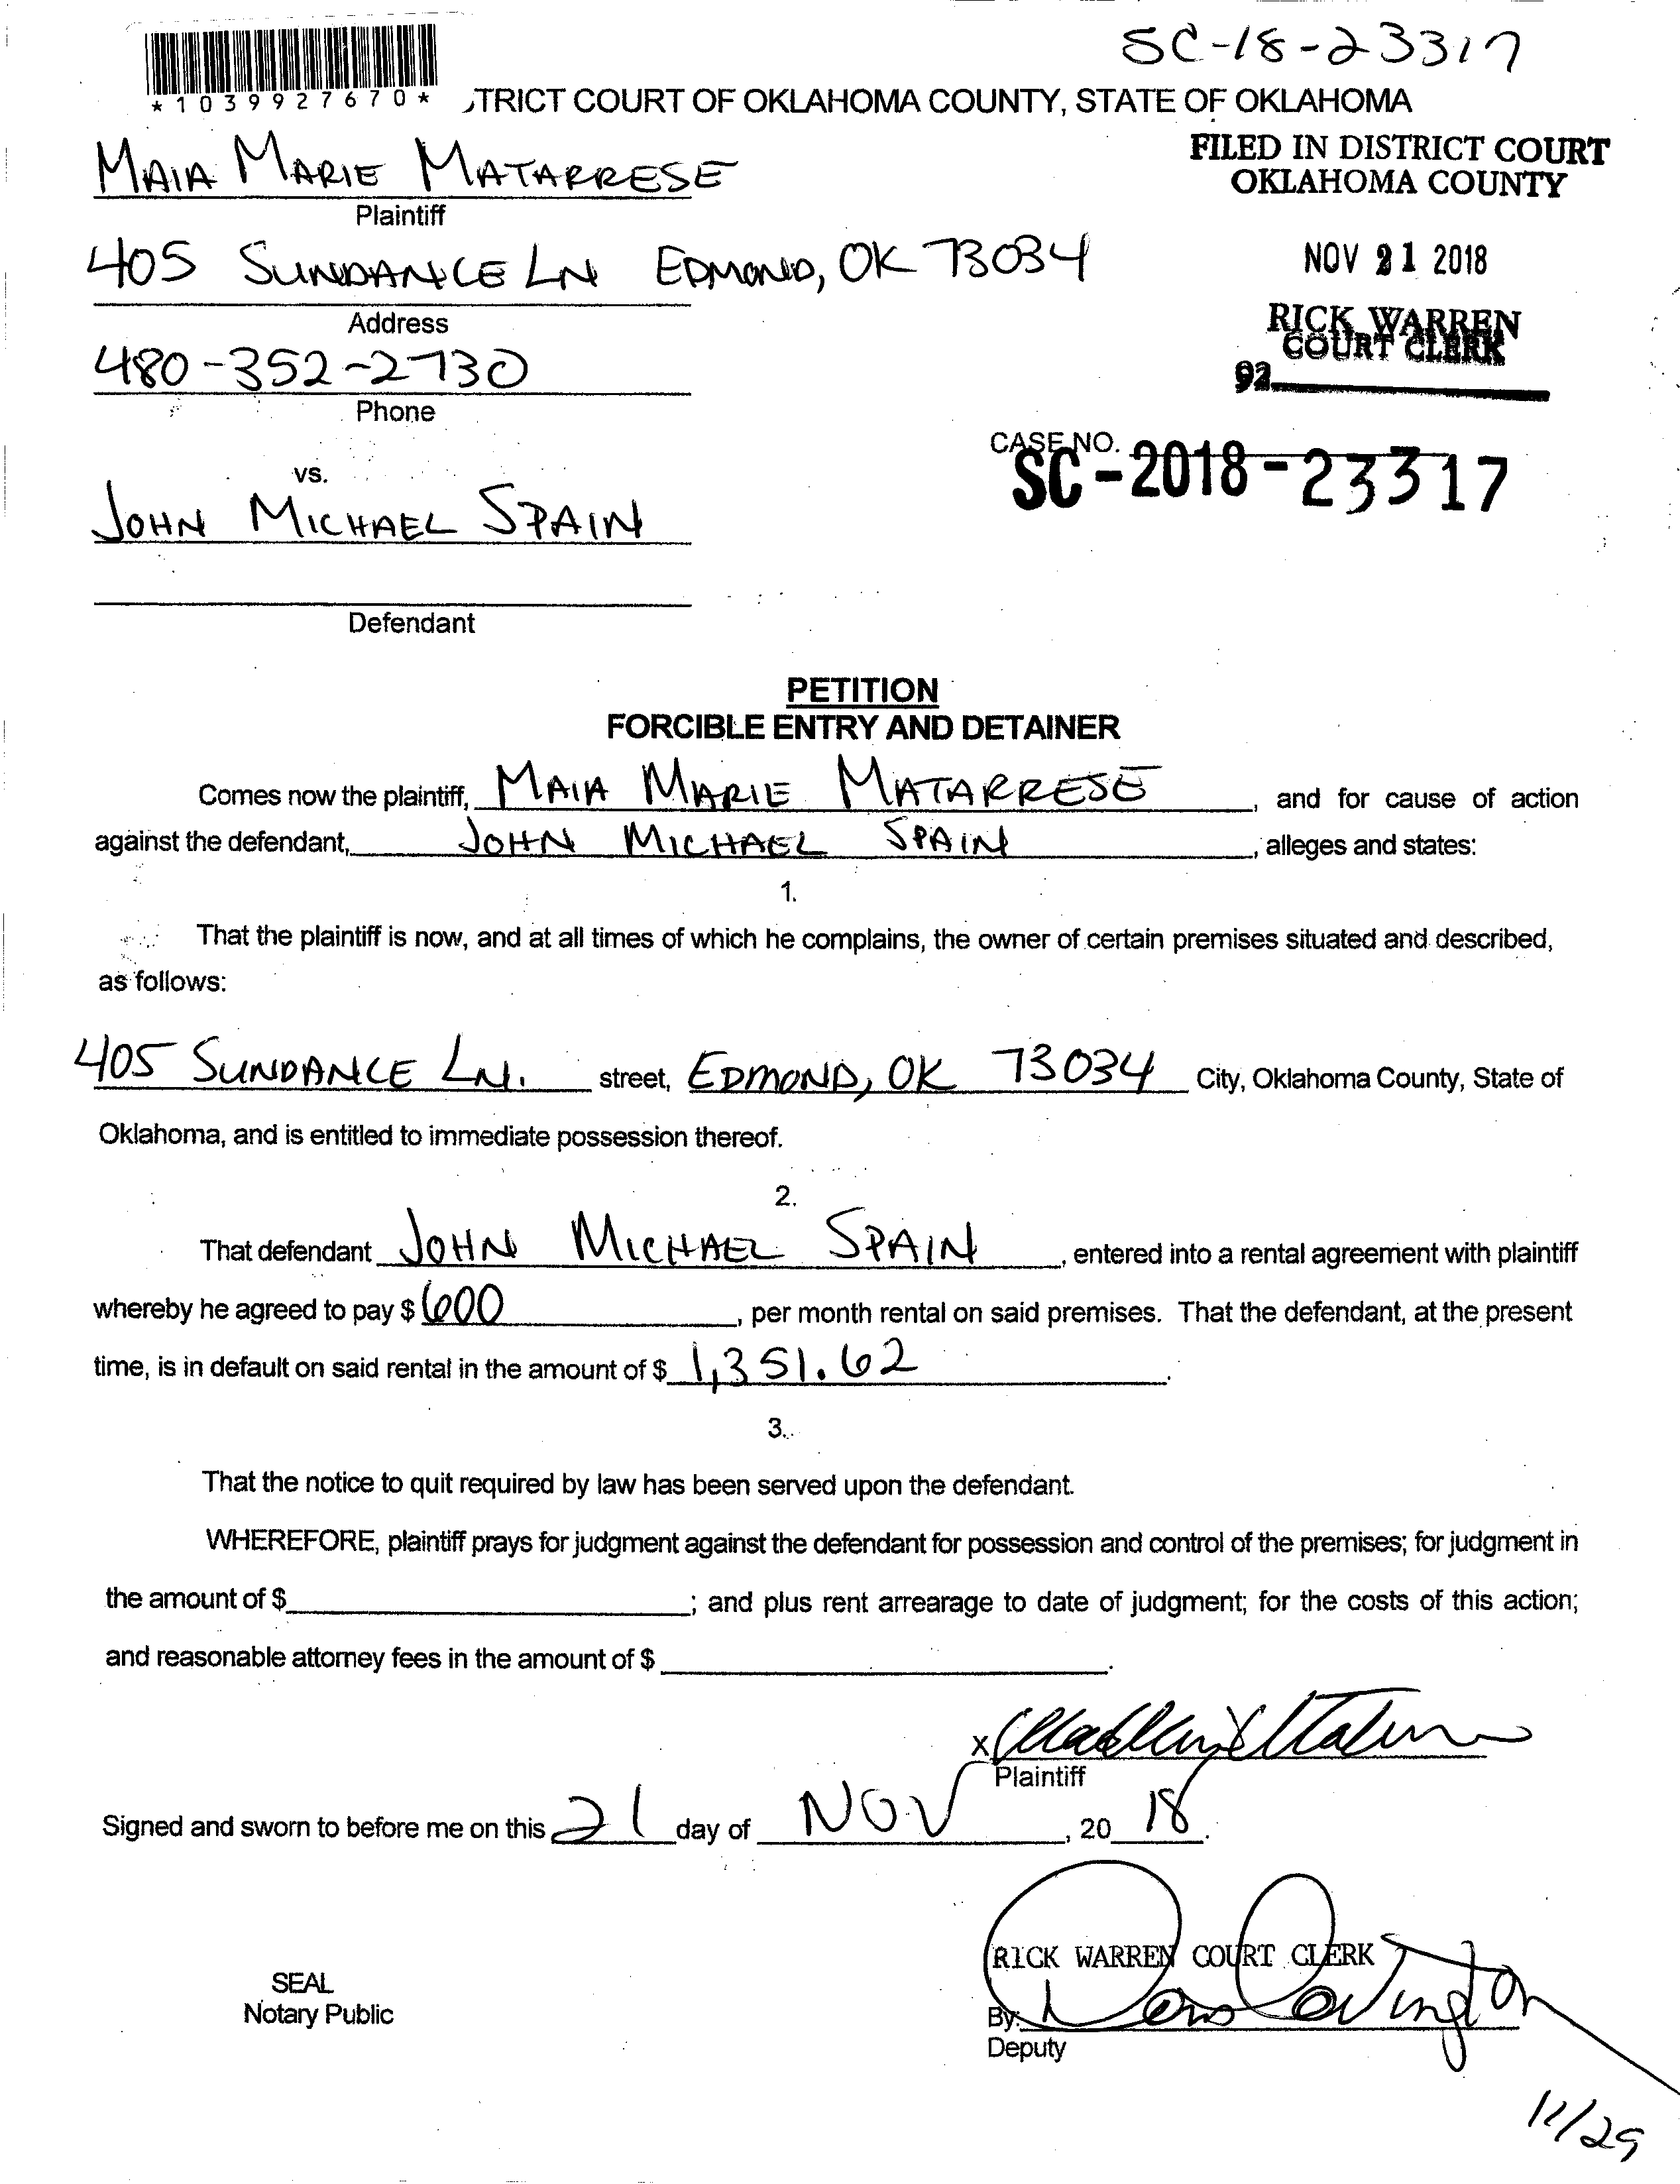 SC-18-23317
*1039927670*
TRICT COURT OF OKLAHOMA COUNTY, STATE OF OKLAHOMA
MAIA MARIE MATARRESE
Plaintiff
FILED IN DISTRICT COURT
OKLAHOMA COUNTY
405 SUNDANCE LN EDMOND, OK 73034
Address
NOV 21 2018
480-352-2730
Phone
RICK WARREN
COURT CLERK
92
CASE NO.
SC-2018-23317
vs.
JOHN MICHAEL SPAIN
Defendant
PETITION
FORCIBLE ENTRY AND DETAINER
Comes now the plaintiff, MAIA MARIE MATARRESE, and for cause of action
against the defendant, JOHN MICHAEL SPAIN, alleges and states:
1.
That the plaintiff is now, and at all times of which he complains, the owner of certain premises situated and described,
as follows:
405 SUNDANCE LN. street, EDMOND, OK 73034 City, Oklahoma County, State of
Oklahoma, and is entitled to immediate possession thereof.
2.
That defendant JOHN MICHAEL SPAIN, entered into a rental agreement with plaintiff
whereby he agreed to pay $ 600, per month rental on said premises. That the defendant, at the present
time, is in default on said rental in the amount of $ 1,351.62.
3.
That the notice to quit required by law has been served upon the defendant.
WHEREFORE, plaintiff prays for judgment against the defendant for possession and control of the premises; for judgment in
the amount of $ ; and plus rent arrearage to date of judgment; for the costs of this action;
and reasonable attorney fees in the amount of $ .
X
Plaintiff
Signed and sworn to before me on this 21 day of NOV, 20 18.
RICK WARREN COURT CLERK
SEAL
Notary Public
By:
Deputy
11/29